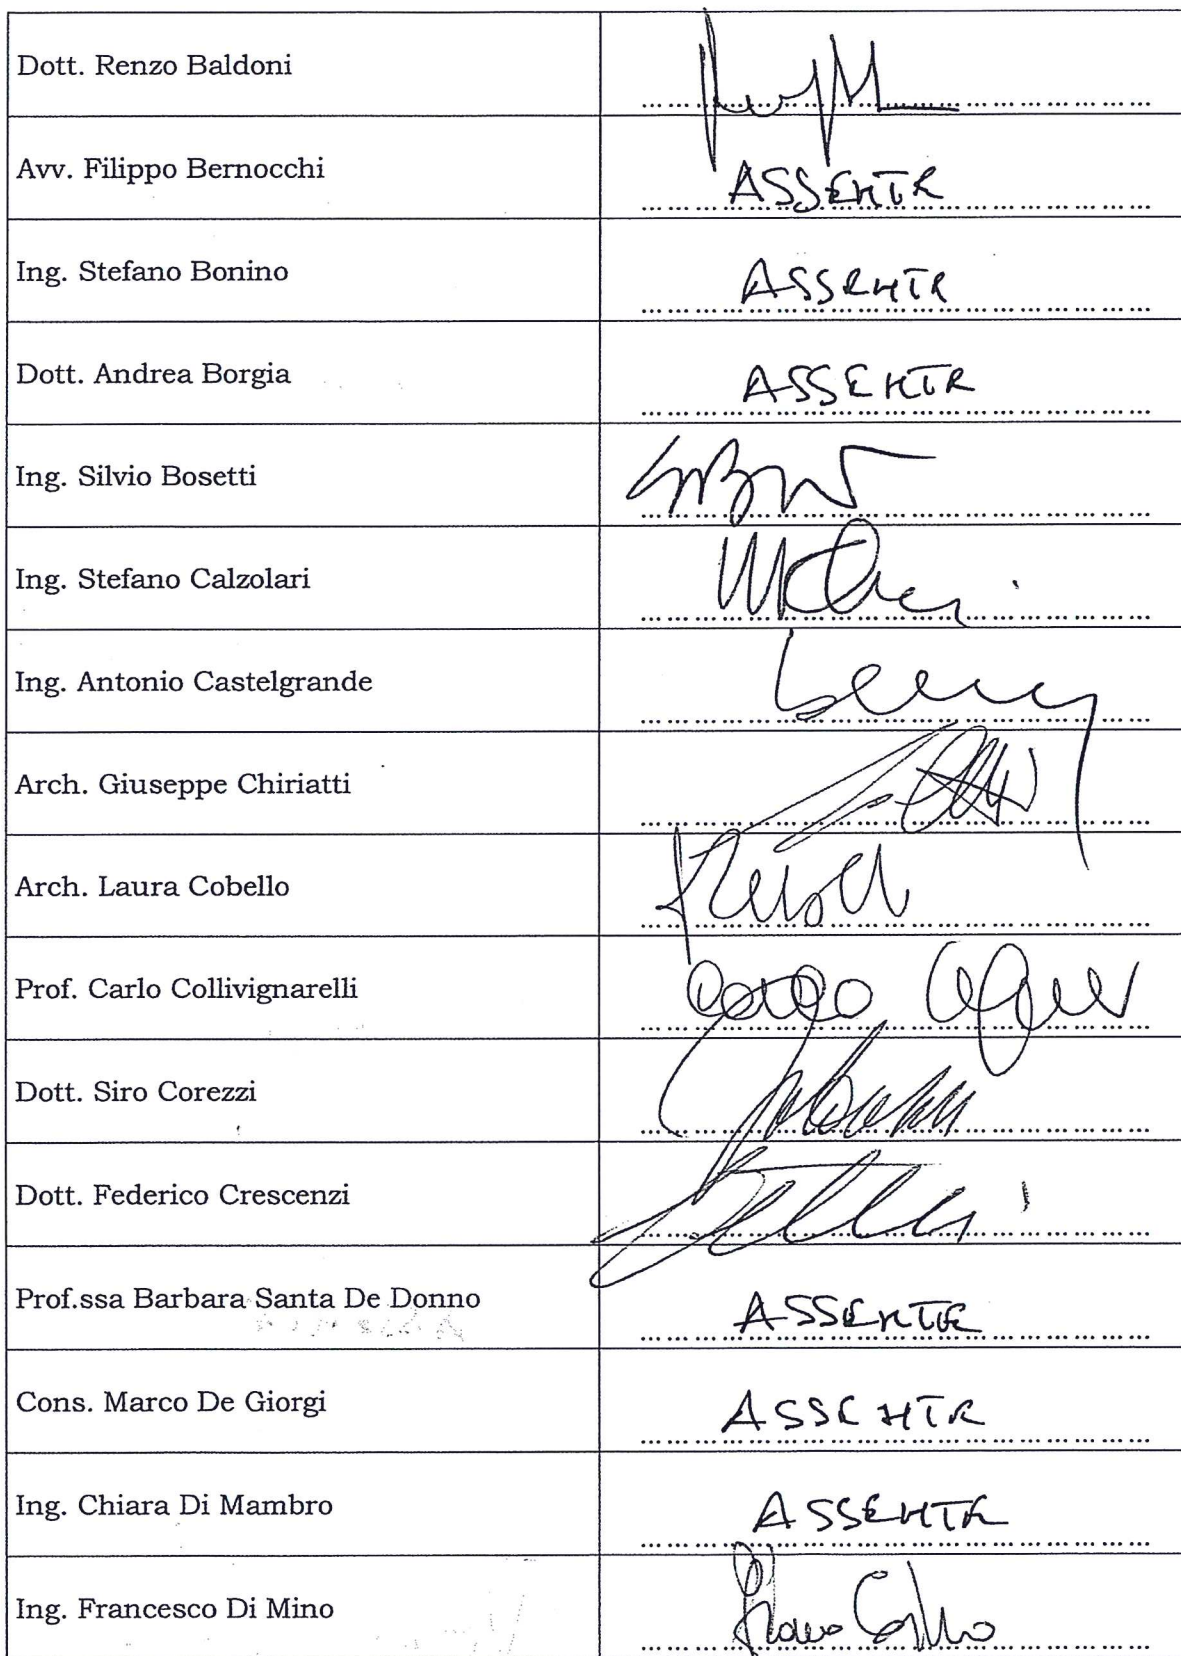 Dott. Renzo Baldoni
Avv. Filippo Bernocchi ASSENTE
Ing. Stefano Bonino ASSENTE
Dott. Andrea Borgia ASSENTE
Ing. Silvio Bosetti
Ing. Stefano Calzolari
Ing. Antonio Castelgrande
Arch. Giuseppe Chiriatti
Arch. Laura Cobello
Prof. Carlo Collivignarelli
Dott. Siro Corezzi
Dott. Federico Crescenzi
Prof.ssa Barbara Santa De Donno ASSENTE
Cons. Marco De Giorgi ASSENTE
Ing. Chiara Di Mambro ASSENTE
Ing. Francesco Di Mino